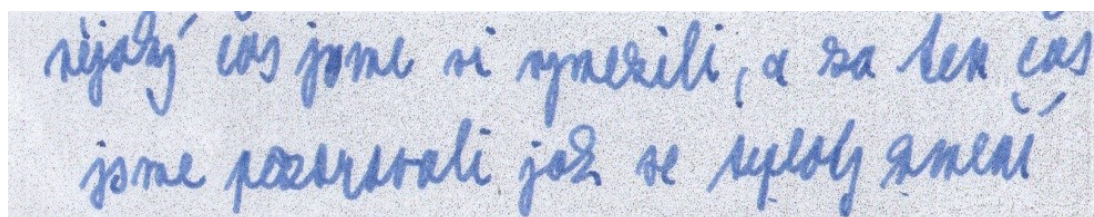 nějaký čas jsme si vymezili, a za ten čas
jsme pozorovali jak se teploty změní